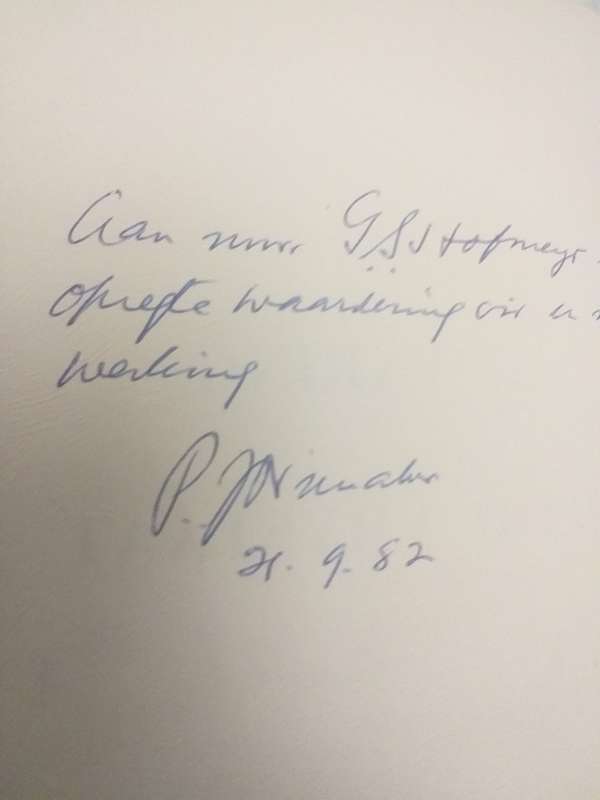 Aan mnr. G.S.J Hofmeyr
opregte waardering vir u
werking
P.
21. 9. 82